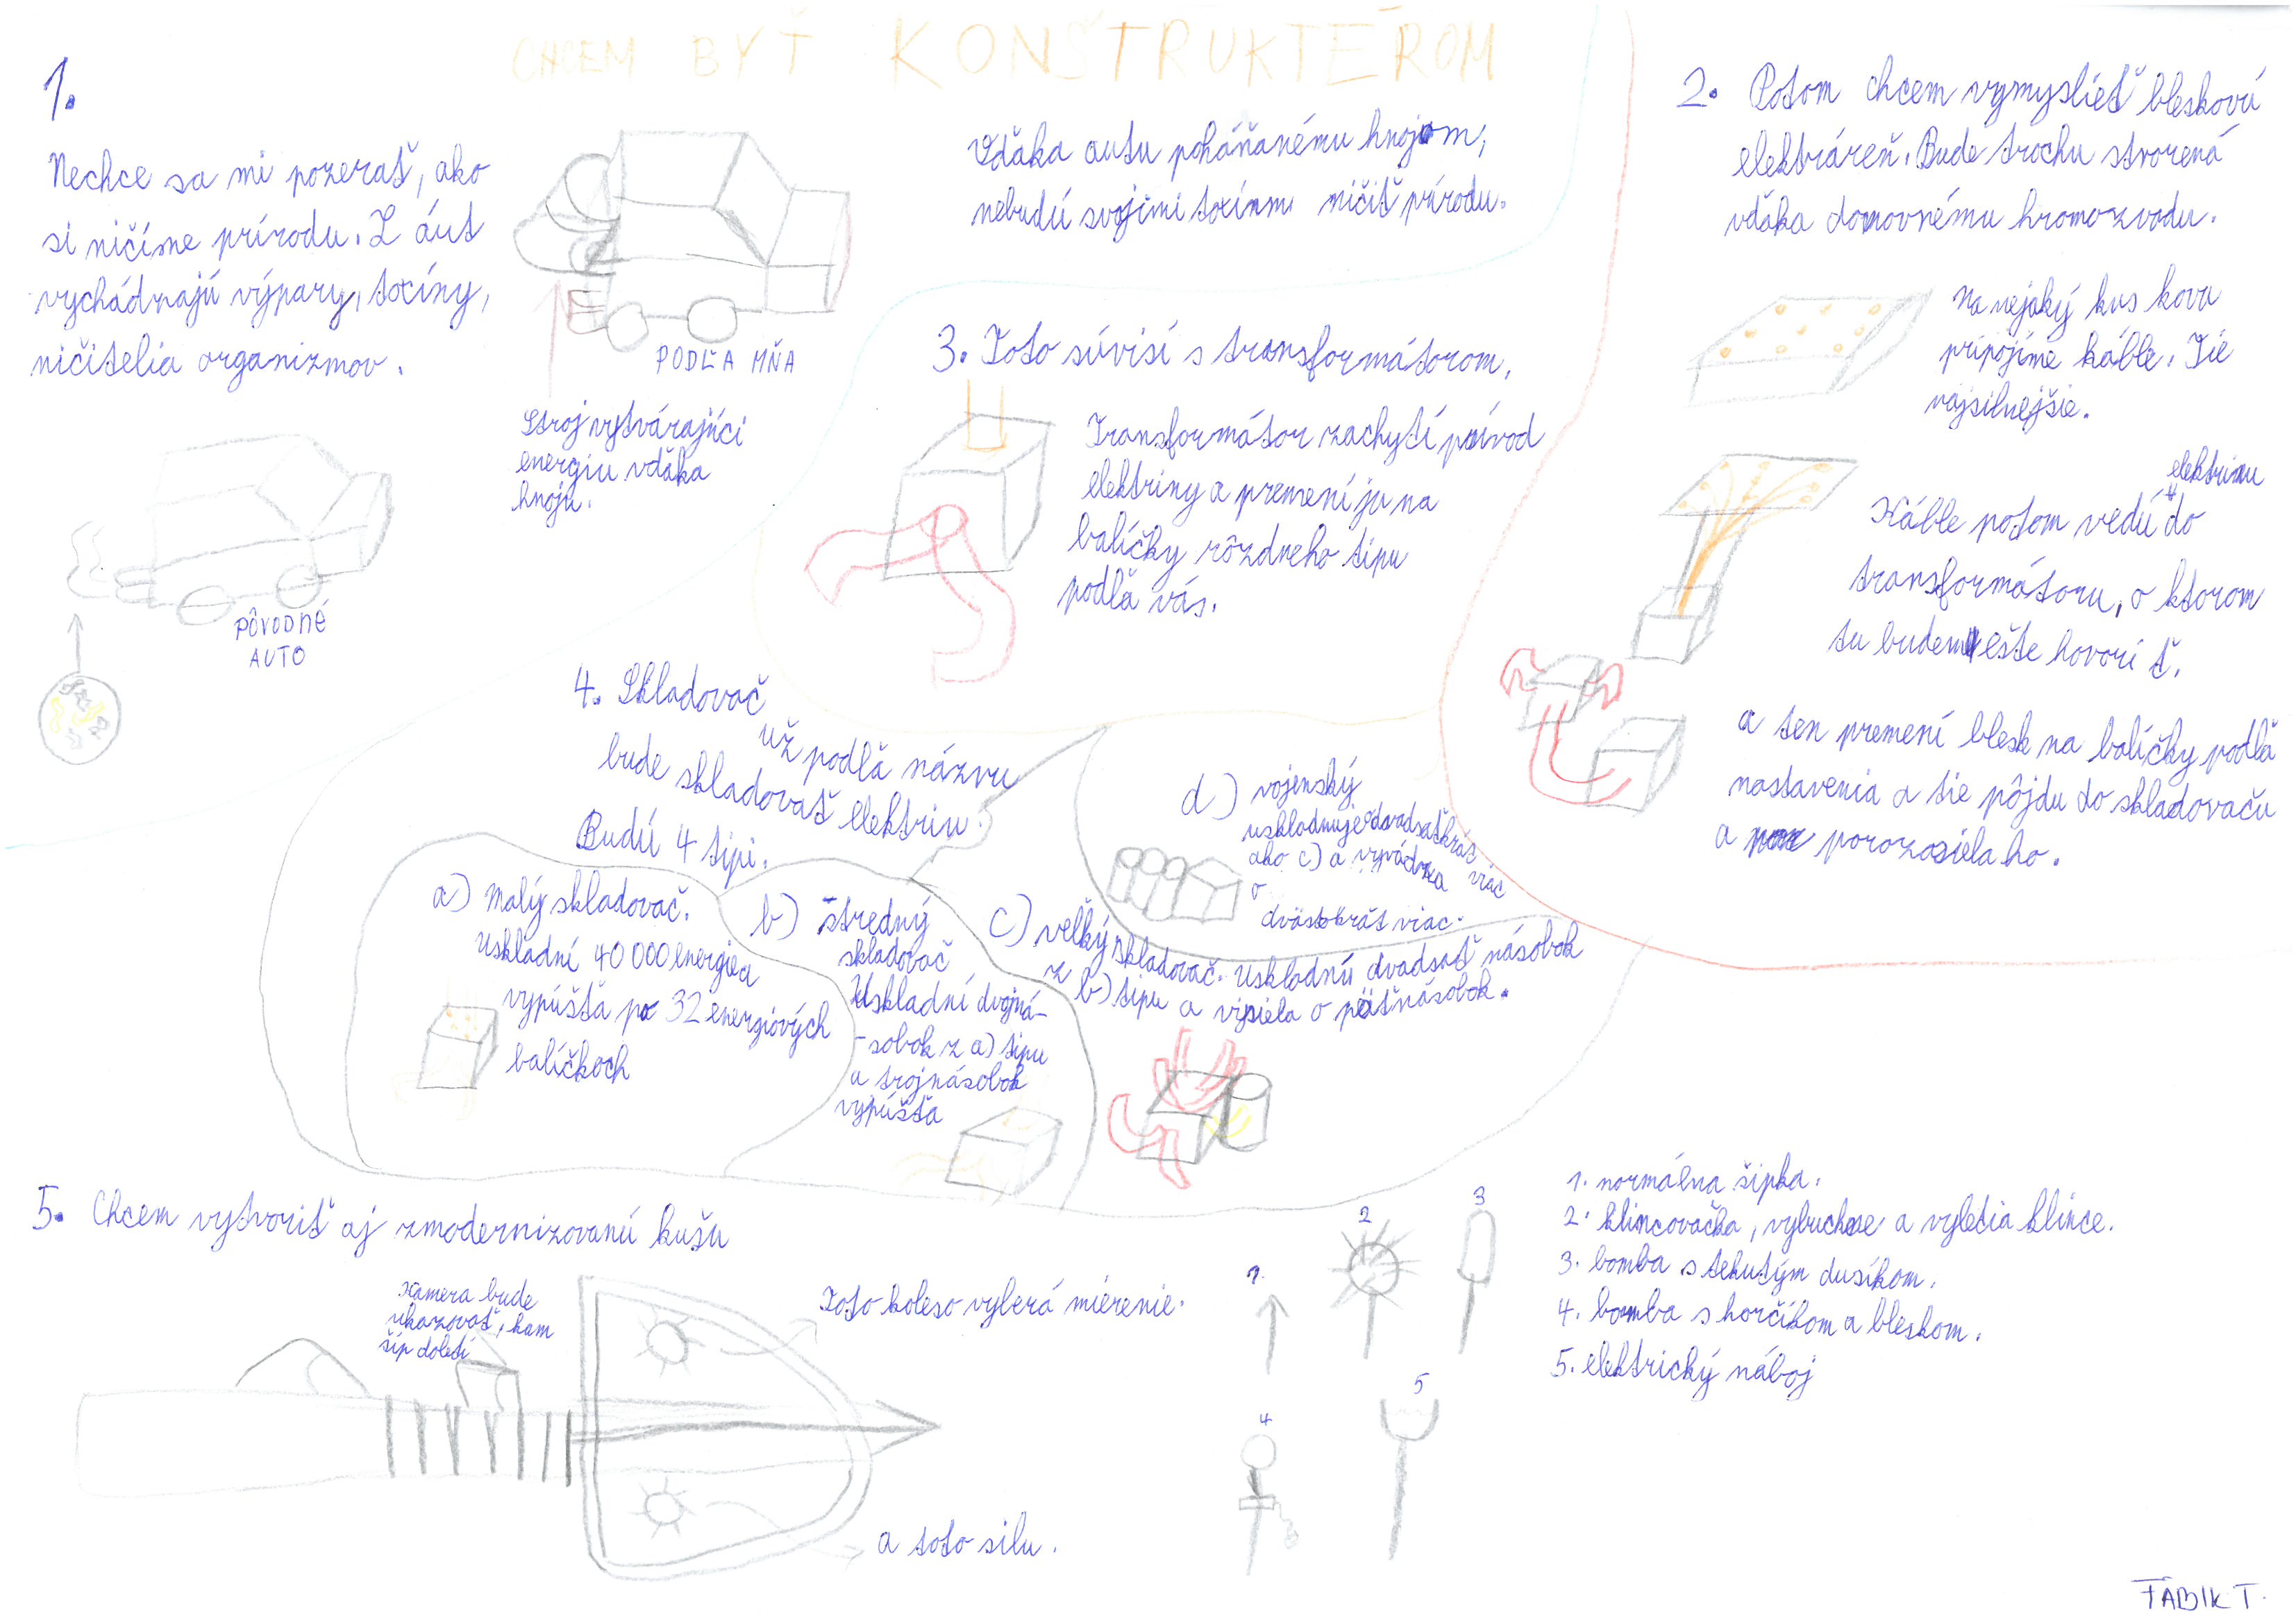 CHCEM BYŤ KONŠTRUKTÉROM
1.
Nechce sa mi pozerať, ako
si ničíme prírodu. Z áut
vychádzajú výpary, toxíny,
ničitelia organizmov.
PÔVODNÉ
AUTO
PODĽA MŇA
Stroj vytvárajúci
energiu vďaka
hnoju.
Vďaka autu poháňanému hnojom,
nebudú svojimi toxínmi ničiť prírodu.
2. Potom chcem vymyslieť bleskovú
elektráreň. Bude trochu stvorená
vďaka domovnému hromozvodu.
Na nejaký kus kovu
pripojíme káble. Tie
najsilnejšie.
elektrinu
Káble potom vedú do
transformátoru, o ktorom
tu budem ešte hovorí ť.
a ten premení blesk na balíčky podľa
nastavenia a tie pôjdu do skladovaču
a porozosiela ho.
3. Toto súvisí s transformátorom.
Transformátor zachytí prívod
elektriny a premení ju na
balíčky rôzdneho tipu
podľa vás.
4. Skladovač
už podľa názvu
bude skladovať elektrinu.
Budú 4 tipi.
a) malý skladovač.
Uskladní 40 000 energie a
vypúšťa po 32 energiových
balíčkoch
b) stredný
skladovač
Uskladní dvojná-
-sobok z a) tipu
a trojnásobok
vypúšťa
c) veľký skladovač. Uskladní dvadsať násobok
z b) tipu a visiela o päťnásobok.
d) vojenský
uskladnuje dvadsaťkrát viac
ako c) a vyvádza
o
dvästokrát viac.
5. Chcem vytvoriť aj zmodernizovanú kušu
Kamera bude
ukazovať, kam
šíp doletí
Toto koleso vyberá mierenie.
a toto silu.
1.
2
3
4
5
1. normálna šípka.
2. klincovačka, vybuchne a vyletia klince.
3. bomba s tekutým dusíkom.
4. bomba s horčíkom a bleskom.
5. elektrický náboj
FABIK T.